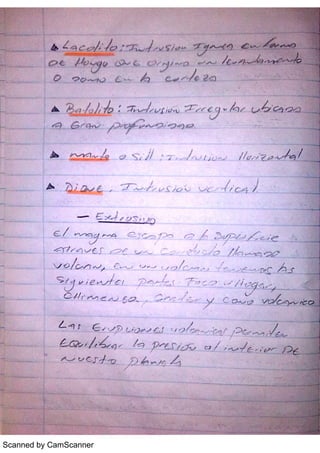 ▲ Lacolito: Intrusion Ignea en forma
De Hongo Que origina un levantamiento
o domo en la corteza
▲ Batolito: Intrusión Irregular ubicada
a Gran profundidad
▲ manto o Sill: Intrusion Horizontal
▲ Dique, Intrusión vertical
— Extrusivo
El magma escapa a la superficie
atraves de un conducto llamado
volcan, en un volcan tenemos las
siguientes partes Foco u Hogar,
chimenea, Crater y cono volcanico
Las Erupciones volcanicas permiten
Equilibrar la presión al interior De
nuestro planeta
Scanned by CamScanner